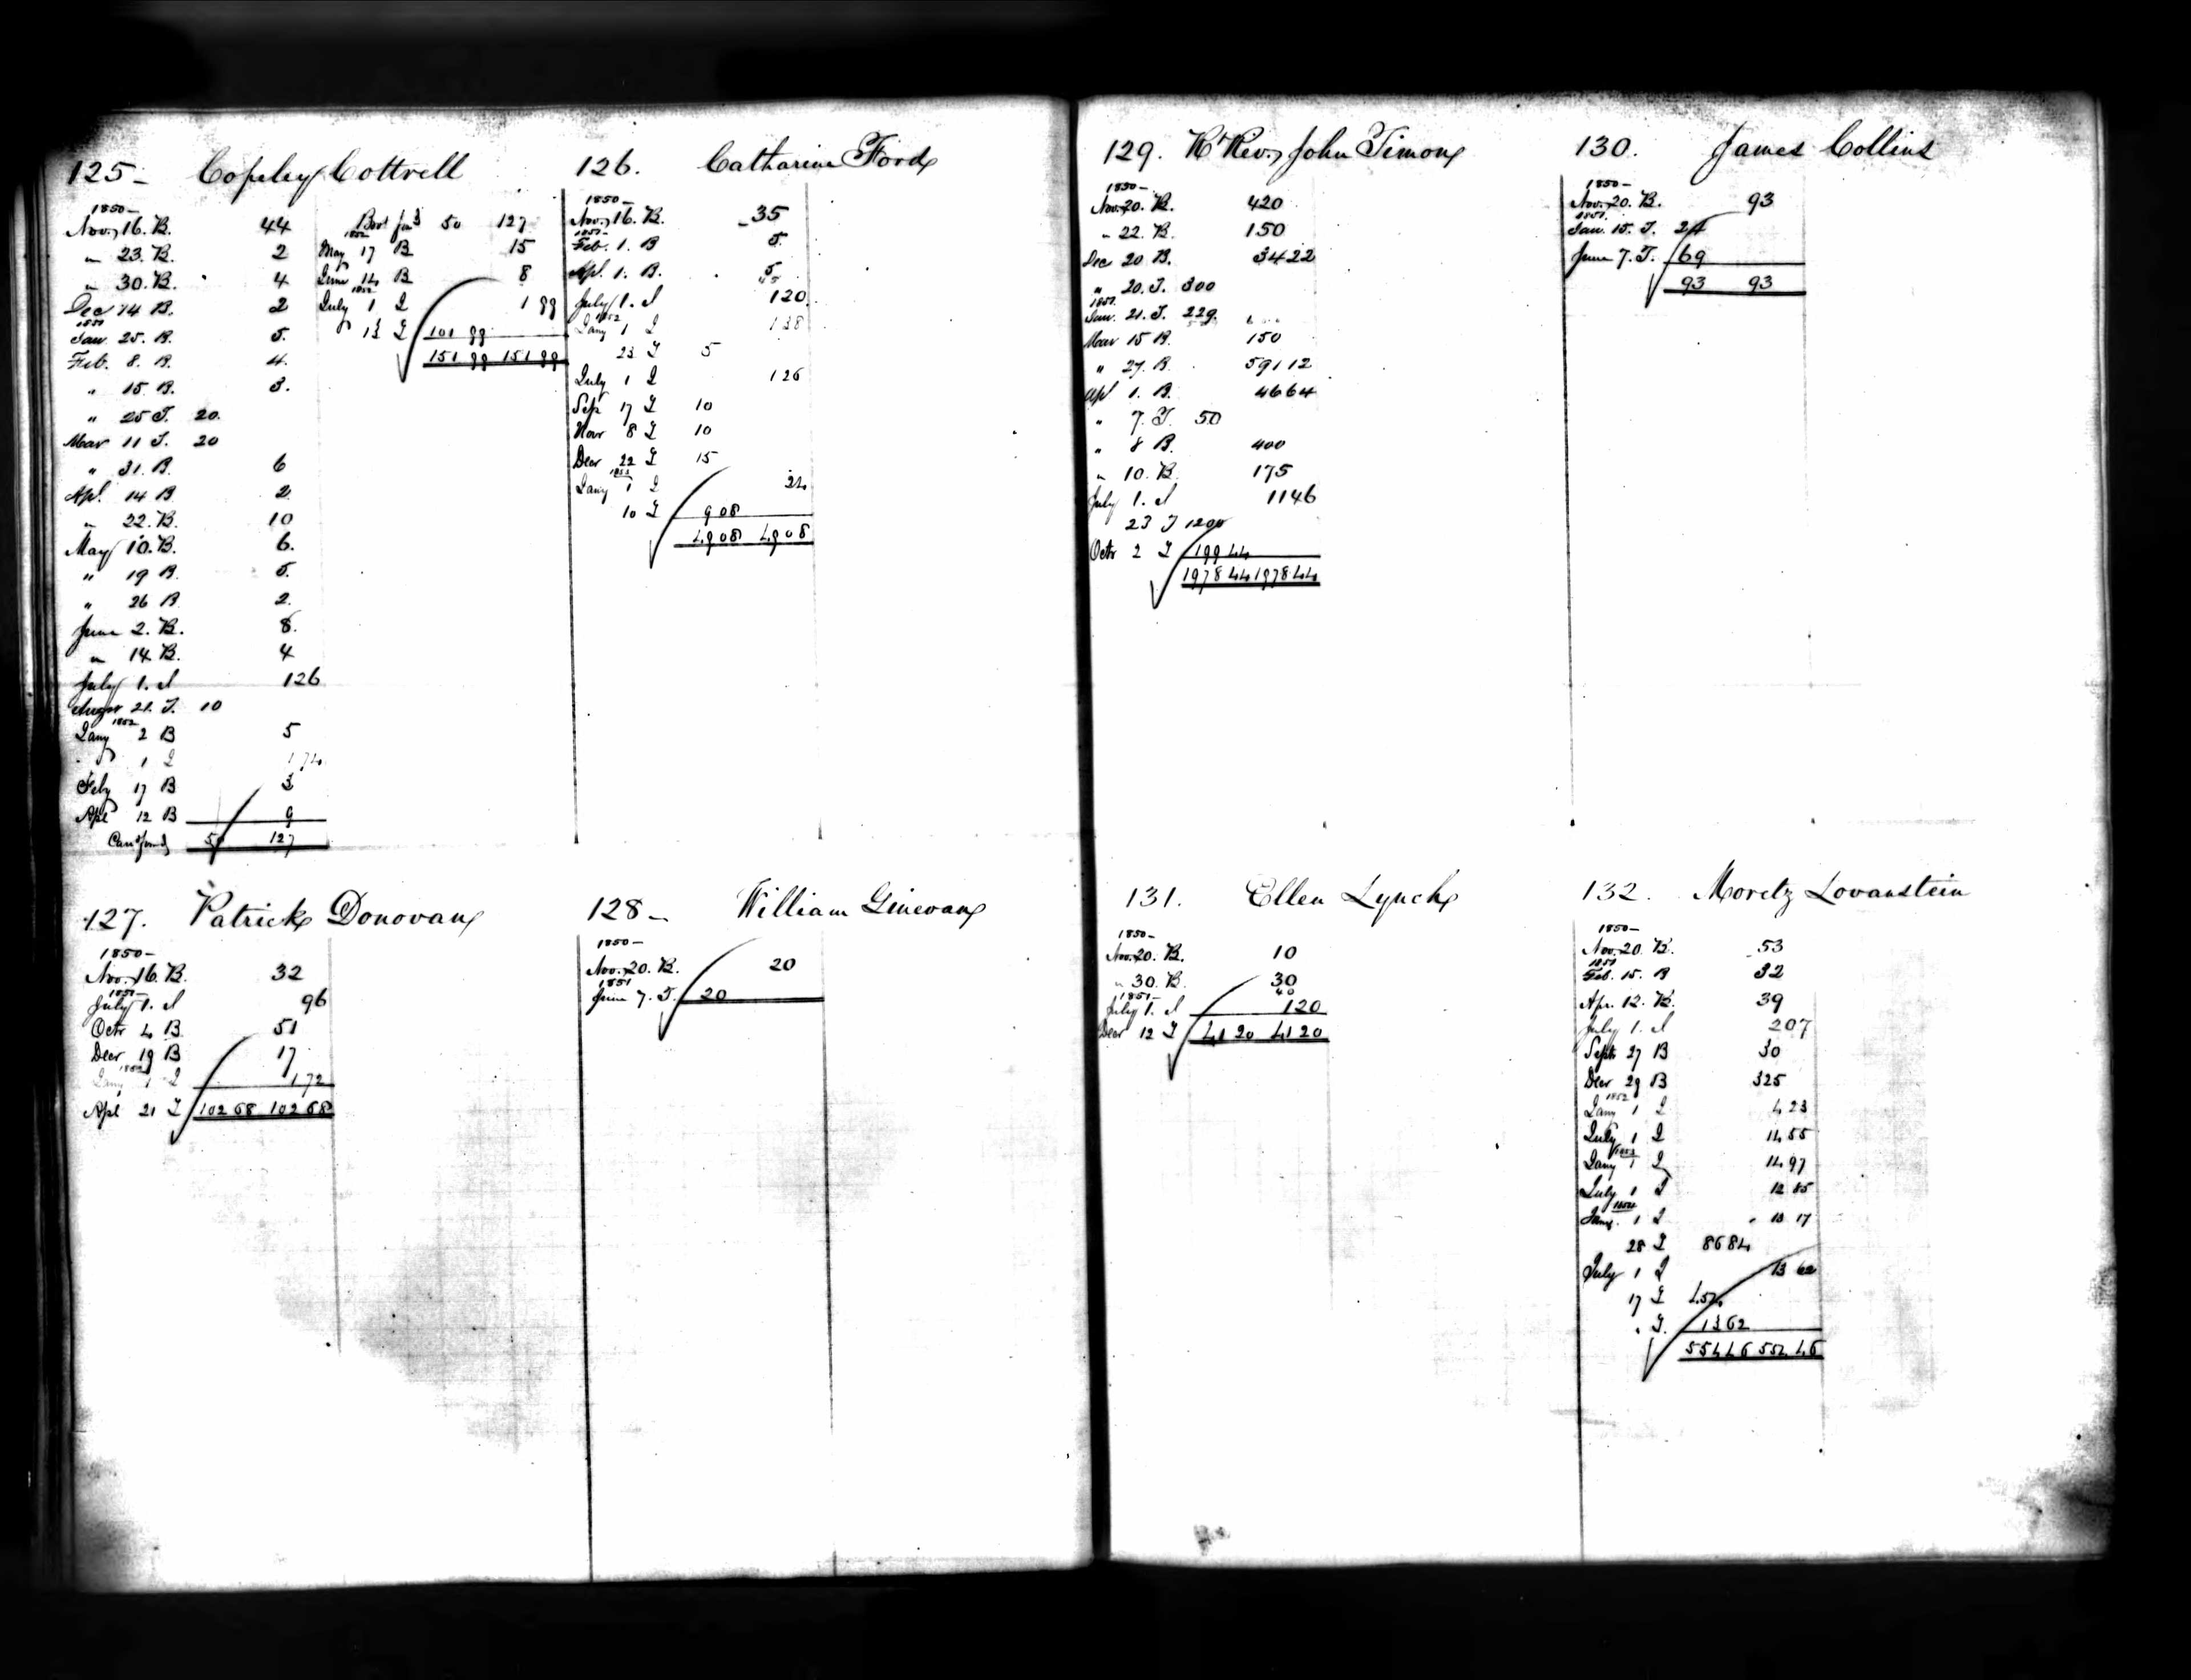 125- Copley Cottrell
1850-
Nov. 16. B. 44
" 23. B. 2
" 30. B. 4
Dec 14 B. 2
1851
Jan. 25. B. 5.
Feb. 8. B. 4.
" 15. B. 3.
" 25 T. 20.
Mar 11 T. 20
" 31. B. 6
Apl. 14 B. 2
" 22. B. 10
May 10. B. 6.
" 19 B. 5.
" 26 B. 2.
June 2. B. 8.
" 14. B. 4
July 1. I 126
21. T. 10
1852
Jany 2 B 5
" 1 I 174
Feby 17 B 3
Apl 12 B 9
Card ford 50 127
Bort ford 50 127
1852
May 17 B 15
June 14 B 8
1852
July 1 I 1 99
13 I 101 99
151 99 151 99
126. Catharine Ford
1850-
Nov. 16. B. 35
1851-
Feb. 1. B 5.
Apl. 1. B. 5
45
July 1. I 120.
1852
Jany 1 I 138
23 I 5
July 1 I 126
Sep 17 I 10
Novr 8 I 10
Decr 22 I 15
1853
Jany 1 I 24
10 I 908
4908 4908
127. Patrick Donovan
1850-
Nov. 16. B. 32
1851-
July 1. I 96
Octr 4 B 51
Decr 19 B 17
1852
Jany 1 I 172
Apl 21 I 102 68 102 68
128- William Ginevan
1850-
Nov. 20. B. 20
1851
June 7. T. 20
129. Rt Rev. John Timon
1850-
Nov. 20. B. 420
" 22. B. 150
Dec 20 B. 3422
" 20. T. 300
1851.
Jan. 21. T. 229.
Mar 15 B. 150
" 27. B. 591 12
Apl 1. B. 4664
" 7. T. 50
" 8 B. 400
" 10. B. 175
July 1. I 1146
23 T 1200
Octr 2 I 199 44
1978 44 1978 44
130. James Collins
1850-
Nov. 20. B. 93
1851.
Jan. 15. T. 24
June 7. T. 69
93 93
131. Ellen Lynch
1850-
Nov. 20. B. 10
" 30. B. 30
40
1851-
July 1. I 120
Decr 12 I 41 20 41 20
132. Moretz Lovanstein
1850-
Nov. 20. B. 53
1851
Feb. 15. B 32
Apr. 12. B. 39
July 1. I 207
Sept 27 B 30
Decr 29 B 325
1852
Jany 1 I 4 23
July 1 I 14 55
1853
Jany 1 I 14 97
July 1 I 12 85
1854
Jany. 1 I 13 17
28 I 86 84
July 1 I 13 62
17 I 454
" I. 13 62
554 46 554 46